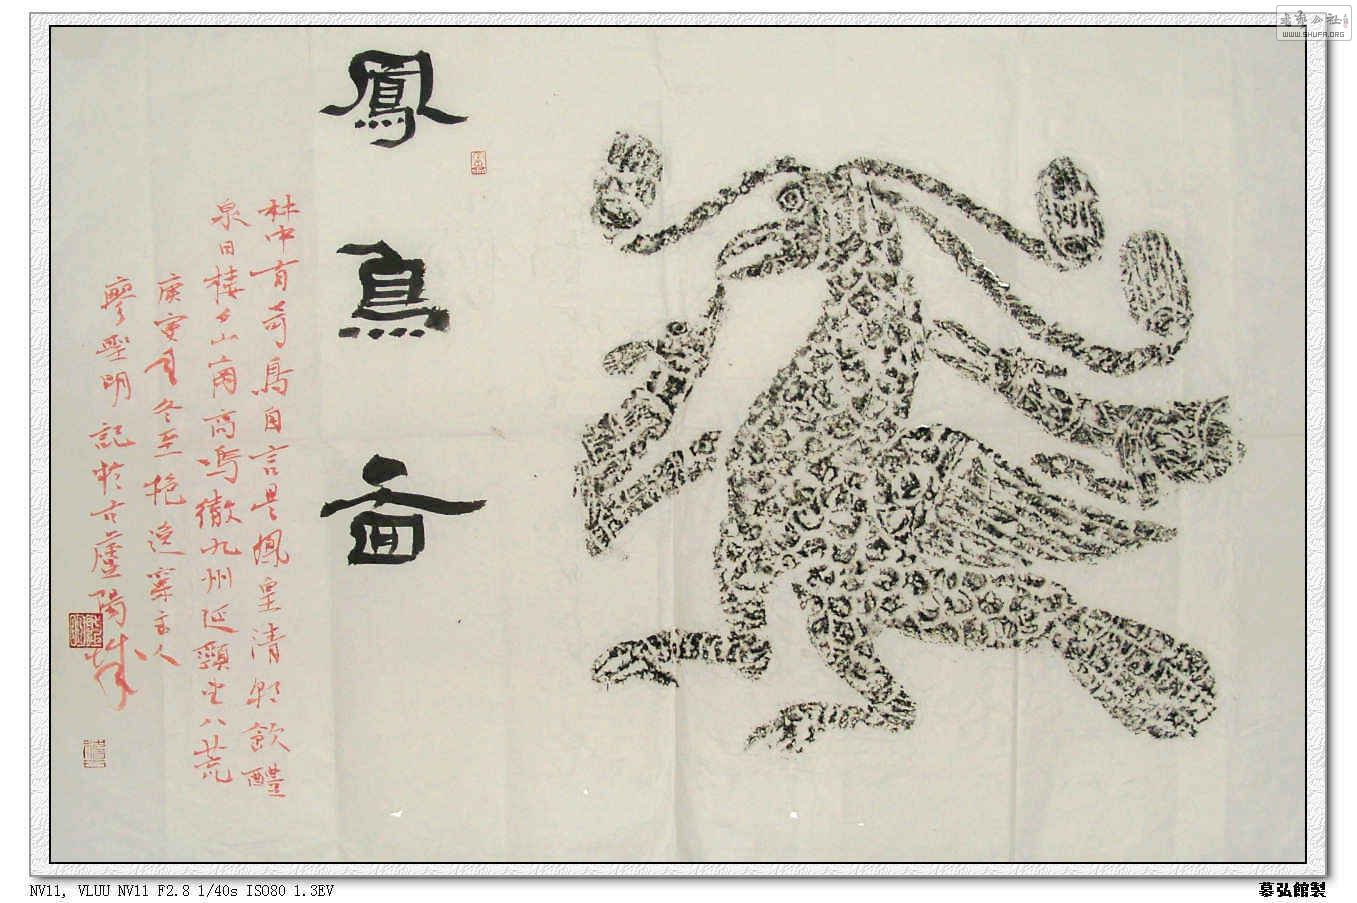 鳳鳥圖
林中有奇鳥自言是鳳皇清朝飲醴
泉日棲山崗高鳴徹九州延頸望八荒
庚寅年冬至艳主人
廖聖明記於古廬陽城
書法公社
WWW.SHUFA.ORG
NV11, VLUU NV11 F2.8 1/40s ISO80 1.3EV
慕弘館製